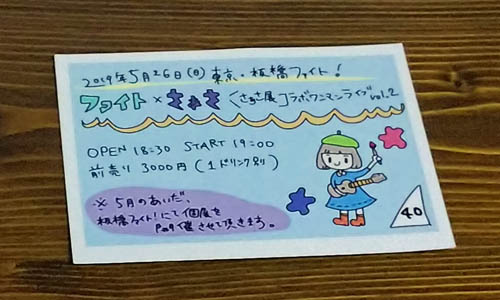 2019年5月26日(日)東京・板橋ファイト!
ファイト×さきさ〈さきさ展〉コラボワンマンライブvol.2
OPEN 18:30 START 19:00
前売り 3000円(1ドリンク別)
※5月のあいだ、
板橋ファイト!にて個展を
開催させて頂きます。
40